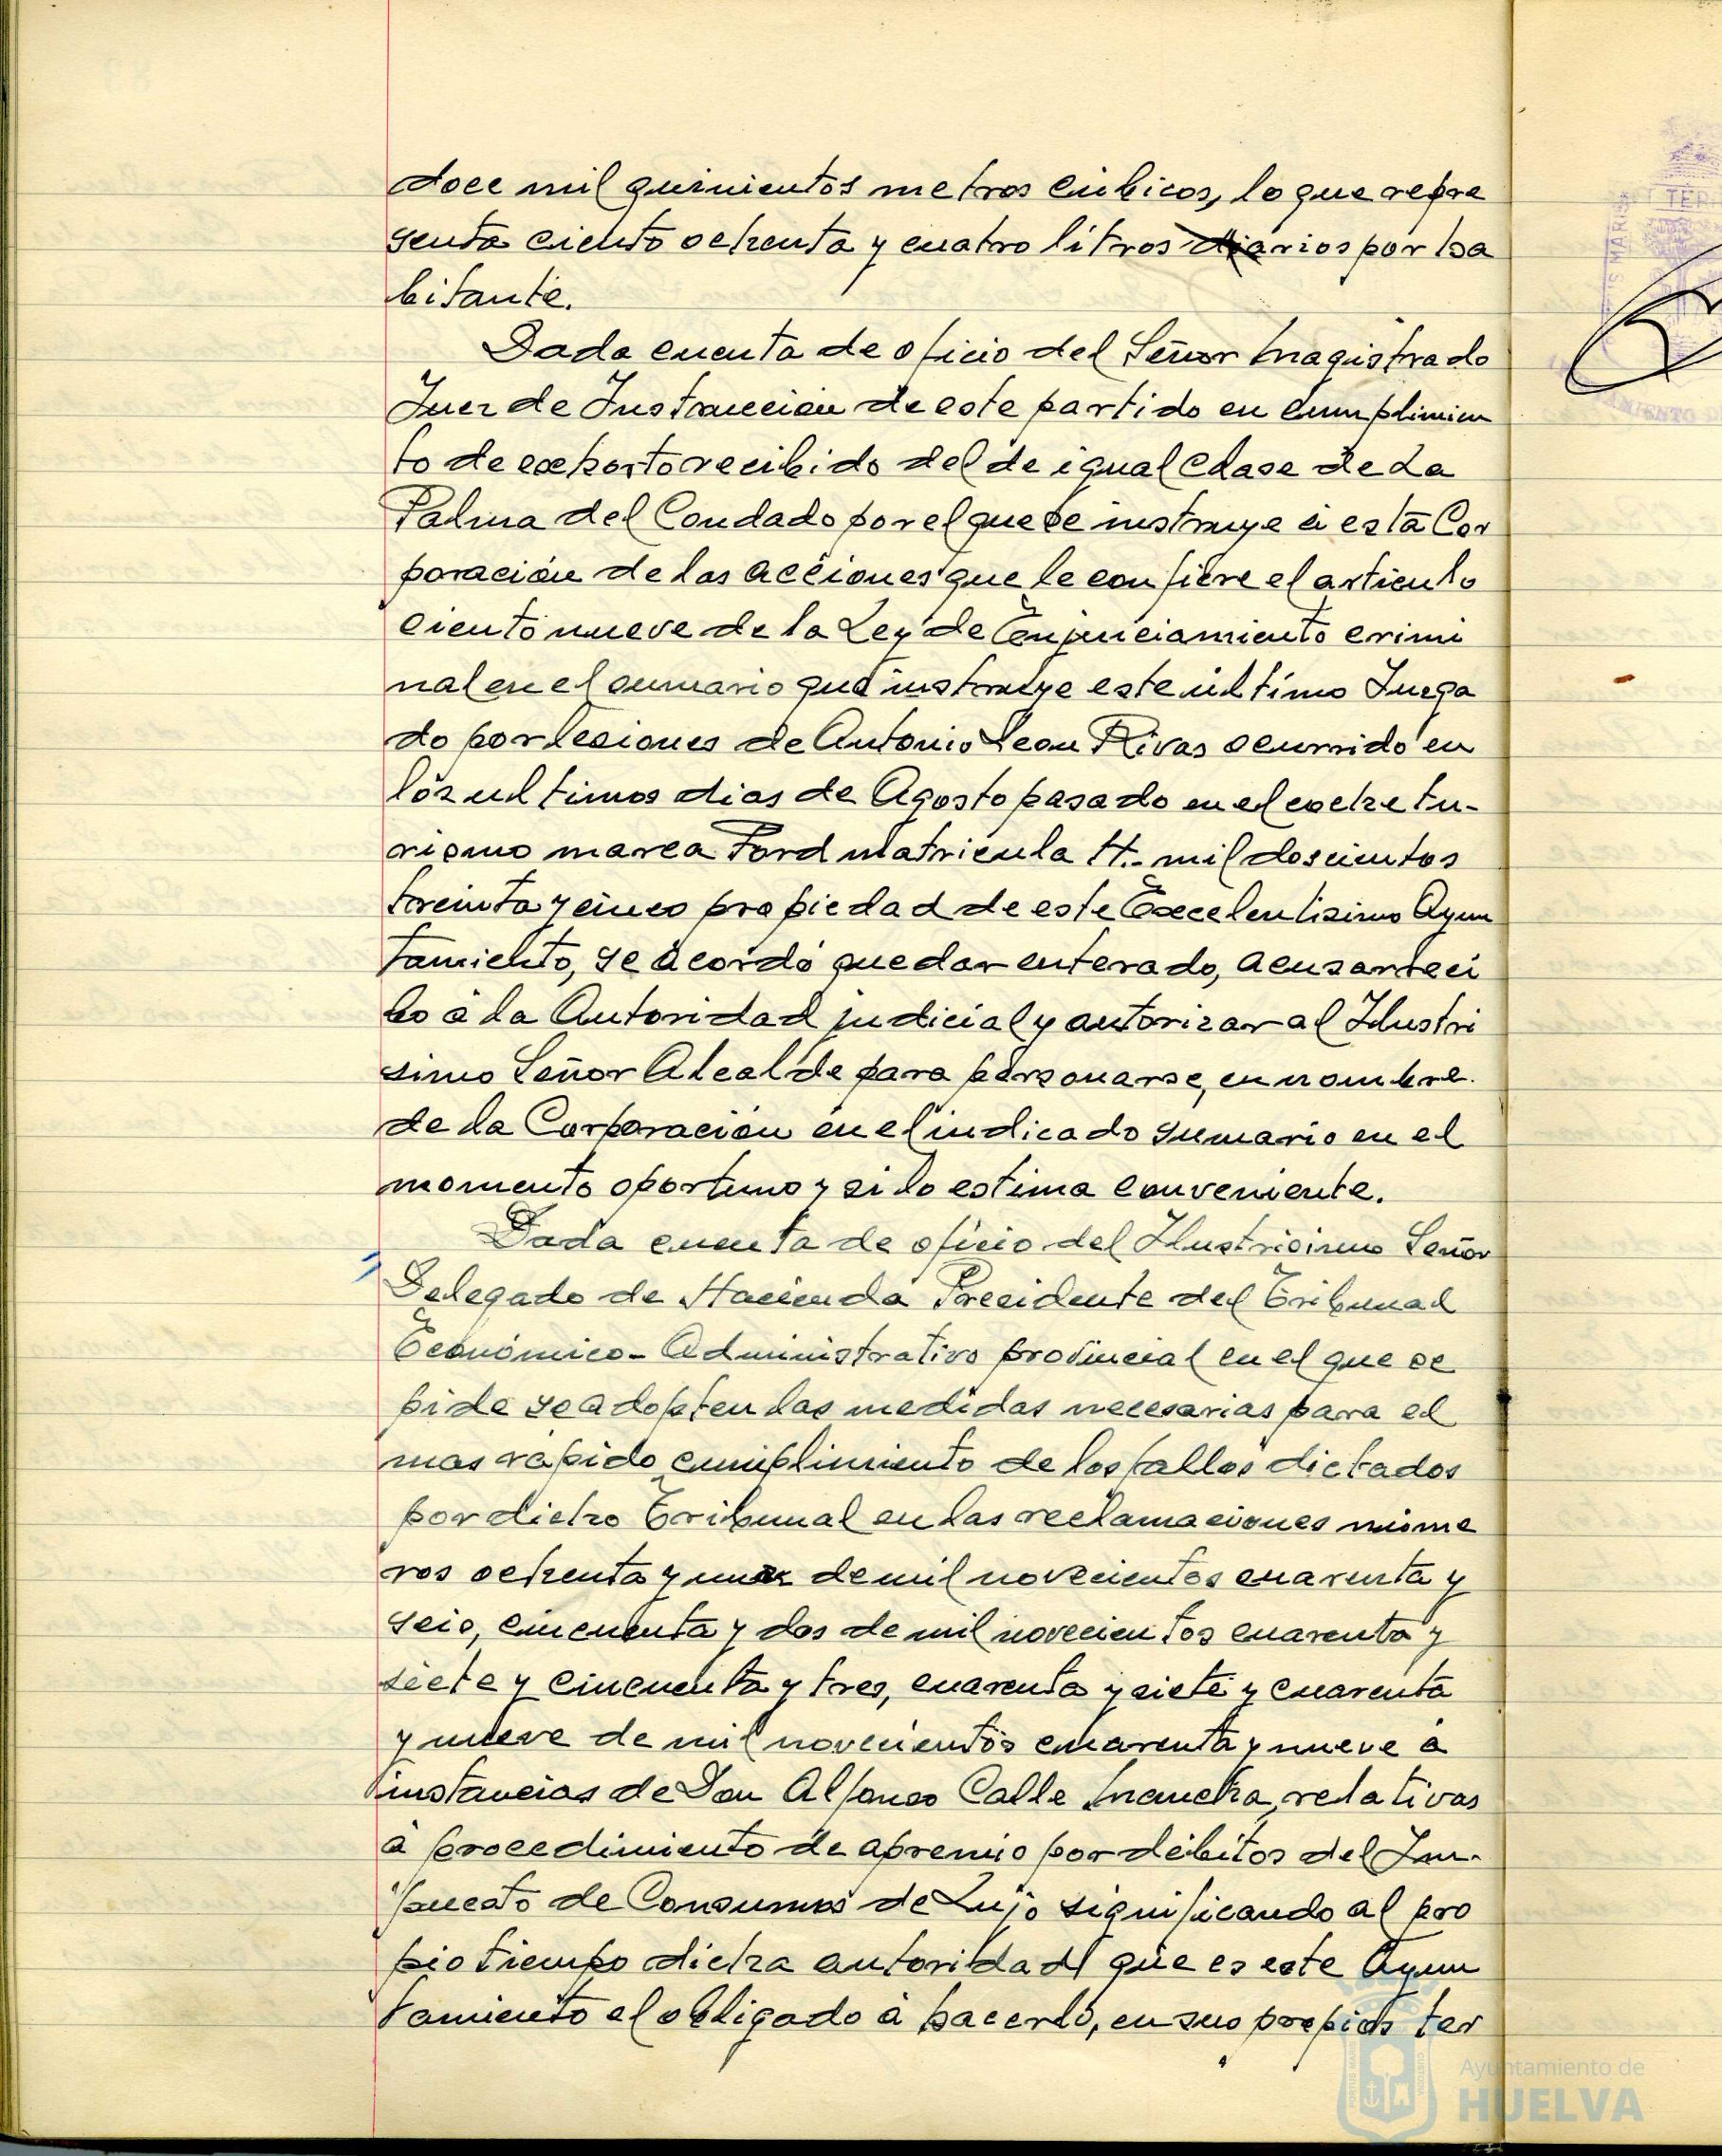 doce mil quinientos metros cúbicos, lo que repre
senta ciento ochenta y cuatro litros diarios por ha
bitante.
Dada cuenta de oficio del Señor Magistrado
Juez de Instrucción de este partido en cumplimien
to de exhorto recibido del de igual clase de La
Palma del Condado por el que se instruye á esta Cor
poración de las acciones que le confiere el articulo
ciento nueve de la Ley de Enjuiciamiento crimi
nal en el sumario que instruye este último Juzga
do por lesiones de Antonio Leon Rivas ocurrido en
los ultimos dias de Agosto pasado en el coche tu-
rismo marca Ford matricula H.- mil doscientos
treinta y cinco propiedad de este Excelentisimo Ayun
tamiento, se acordó quedar enterado, acusar reci
bo á la Autoridad judicial y autorizar al Ilustri
simo Señor Alcalde para personarse, en nombre
de la Corporación en el indicado sumario en el
momento oportuno y si lo estima conveniente.
Dada cuenta de oficio del Ilustrisimo Señor
Delegado de Hacienda Presidente del Tribunal
Económico-Administrativo provincial en el que se
pide se adopten las medidas necesarias para el
mas rápido cumplimiento de los fallos dictados
por dicho Tribunal en las reclamaciones núme
ros ochenta y de mil novecientos cuarenta y
seis, cincuenta y dos de mil novecientos cuarenta y
siete y cincuenta y tres, cuarenta y siete y cuarenta
y nueve de mil novecientos cuarenta y nueve á
instancias de Don Alfonso Calle Mancha, relativas
á procedimiento de apremio por débitos del Im-
puesto de Consumos de Lujo significando al pro
pio tiempo dicha autoridad que es este Ayun
tamiento el obligado á hacerlo, en sus propios ter
Ayuntamiento de
HUELVA